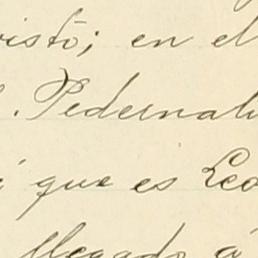 visto; en el
. Pedernal
que es Leo
llegado á